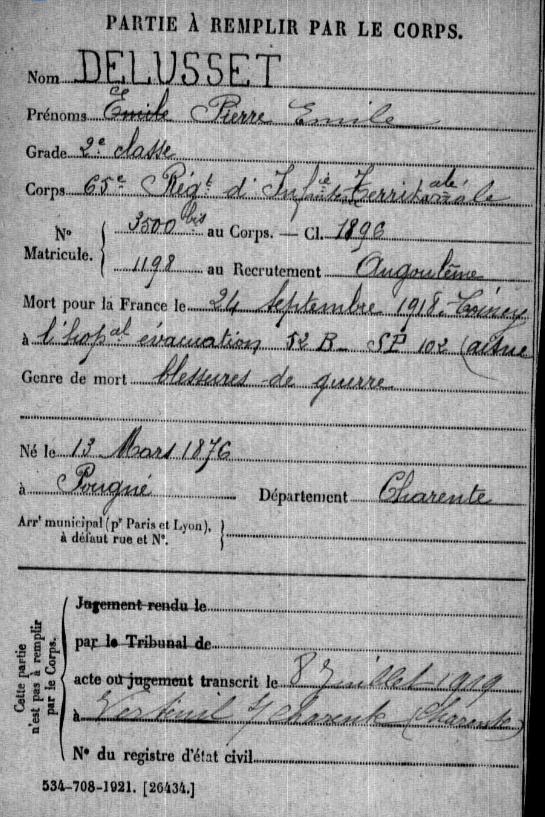 PARTIE À REMPLIR PAR LE CORPS.
Nom DELUSSET
Prénoms Emile Pierre Emile
Grade 2e classe
Corps 65e Régt d'Infie Territoriale
N° Matricule. { 3500 bis au Corps. — Cl. 1896
1198 au Recrutement Angoulême
Mort pour la France le 24 Septembre 1918 Coincy
à l'hopal évacuation 52 B SP 102 (Aisne
Genre de mort blessures de guerre
Né le 13 Mars 1876
à Pougné Département Charente
Arrt municipal (pr Paris et Lyon),
à défaut rue et N°.
Cette partie
n'est pas à remplir
par le Corps.
Jugement rendu le
par le Tribunal de
acte ou jugement transcrit le 8 Juillet 1919
à Verteuil s/ Charente (Charente)
N° du registre d'état civil
534-708-1921. [26434.]